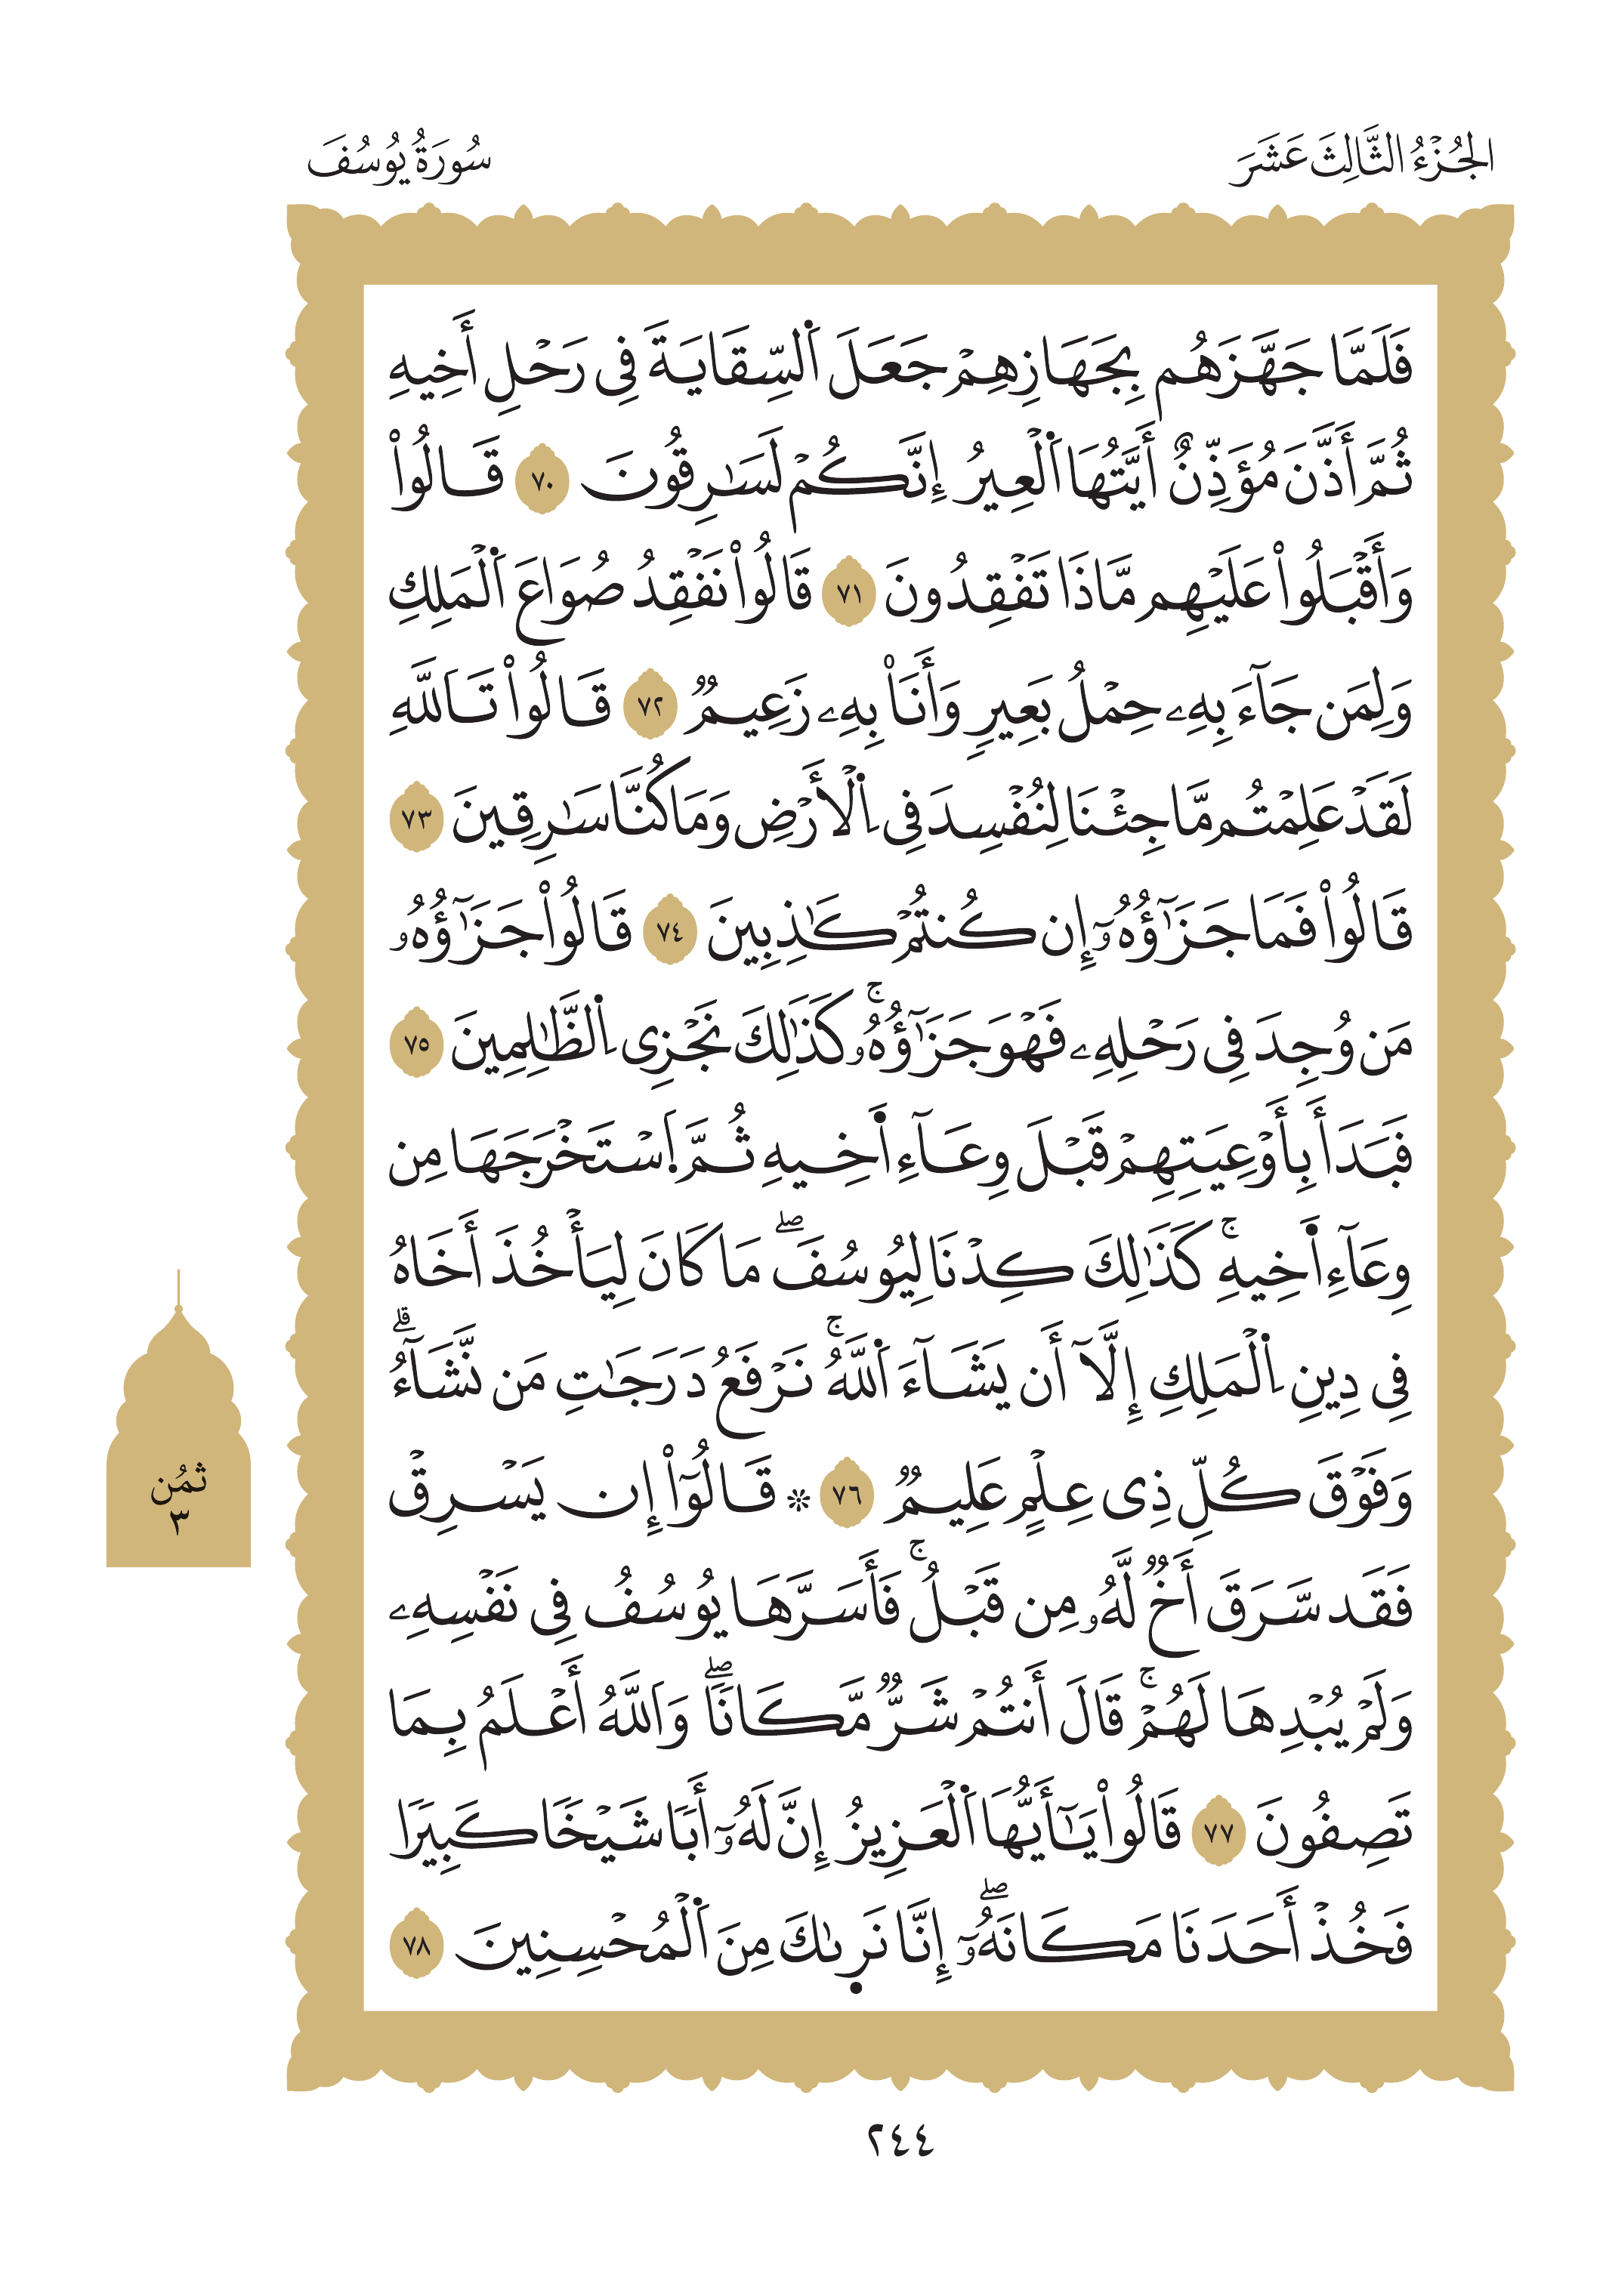 الجُزْءُ الثَّالِثَ عَشَرَ
سُورَةُ يُوسُفَ
فَلَمَّا جَهَّزَهُم بِجَهَازِهِمْ جَعَلَ اَ۬لسِّقَايَةَ فِى رَحْلِ أَخِيهِ
ثُمَّ أَذَّنَ مُؤَذِّنٌ أَيَّتُهَا اَ۬لْعِيرُ إِنَّكُمْ لَسَٰرِقُونَ ٧٠ قَالُواْ
وَأَقْبَلُواْ عَلَيْهِم مَّاذَا تَفْقِدُونَ ٧١ قَالُواْ نَفْقِدُ صُوَاعَ اَ۬لْمَلِكِ
وَلِمَن جَآءَ بِهِۦ حِمْلُ بَعِيرٖ وَأَنَا۠ بِهِۦ زَعِيمٞ ٧٢ قَالُواْ تَاَللَّهِ
لَقَدْ عَلِمْتُم مَّا جِئْنَا لِنُفْسِدَ فِى اِ۬لْأَرْضِ وَمَا كُنَّا سَٰرِقِينَ ٧٣
قَالُواْ فَمَا جَزَٰٓؤُهُۥٓ إِن كُنتُمْ كَٰذِبِينَ ٧٤ قَالُواْ جَزَٰٓؤُهُۥ
مَن وُجِدَ فِى رَحْلِهِۦ فَهْوَ جَزَٰٓؤُهُۥۚ كَذَٰلِكَ نَجْزِى اِ۬لظَّٰلِمِينَ ٧٥
فَبَدَأَ بِأَوْعِيَتِهِمْ قَبْلَ وِعَآءِ اَ۬خِيهِ ثُمَّ اَ۪سْتَخْرَجَهَا مِن
وِعَآءِ اَ۬خِيهِۚ كَذَٰلِكَ كِدْنَا لِيُوسُفَۖ مَا كَانَ لِيَأْخُذَ أَخَاهُ
فِى دِينِ اِ۬لْمَلِكِ إِلَّآ أَن يَشَآءَ اَ۬للَّهُۚ نَرْفَعُ دَرَجَٰتِ مَن نَّشَآءُۗ
وَفَوْقَ كُلِّ ذِى عِلْمٍ عَلِيمٞ ٧٦ ۞ قَالُوٓاْ إِن يَسْرِقْ
فَقَد سَّرَقَ أَخٞ لَّهُۥ مِن قَبْلُۚ فَأَسَرَّهَا يُوسُفُ فِى نَفْسِهِۦ
وَلَمْ يُبْدِهَا لَهُمْۚ قَالَ أَنتُمْ شَرّٞ مَّكَانٗاۖ وَاَللَّهُ أَعْلَمُ بِمَا
تَصِفُونَ ٧٧ قَالُواْ يَٰٓأَيُّهَا اَ۬لْعَزِيزُ إِنَّ لَهُۥٓ أَبٗا شَيْخٗا كَبِيرٗا
فَخُذْ أَحَدَنَا مَكَانَهُۥٓۖ إِنَّا نَر۪ىٰكَ مِنَ اَ۬لْمُحْسِنِينَ ٧٨
ثُمُن
٣
٢٤٤